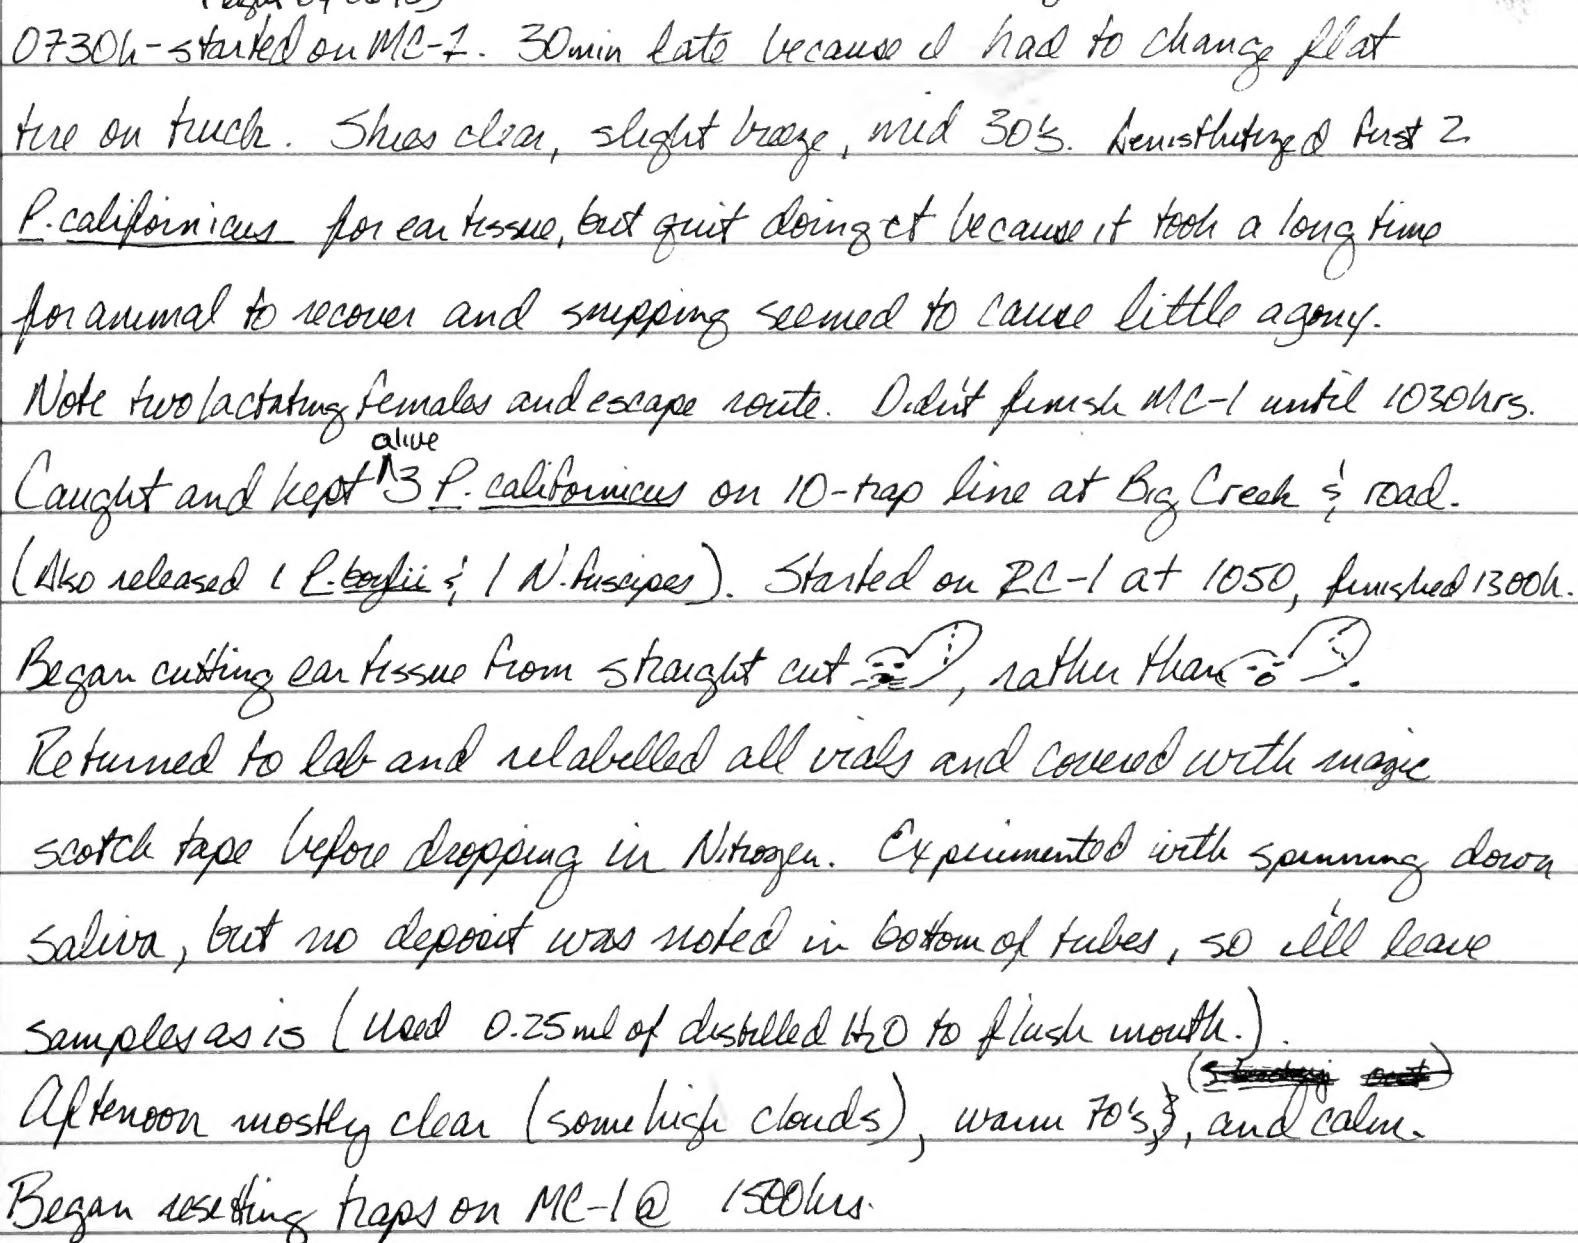 0730h-started on MC-1. 30min late because I had to change flat
tire on truck. Skies clear, slight breeze, mid 30's. Aenisthitized first 2
P. californicus for ear tissue, but quit doing it because it took a long time
for animal to recover and snipping seemed to cause little agony.
Note two lactating females and escape route. Didn't finish MC-1 until 1030hrs.
alive
Caught and kept ^3 P. californicus on 10-trap line at Big Creek & road.
(Also released 1 P. boylii & 1 N. fuscipes). Started on RC-1 at 1050, finished 1300h.
Began cutting ear tissue from straight cut , rather than .
Returned to lab and relabelled all vials and covered with magic
scotch tape before dropping in Nitrogen. Experimented with spinning down
saliva, but no deposit was noted in bottom of tubes, so I'll leave
samples as is (used 0.25ml of distilled H2O to flush mouth.).
Afternoon mostly clear (some high clouds), warm 70's, and calm.
Began resetting traps on MC-1 @ 1500hrs.